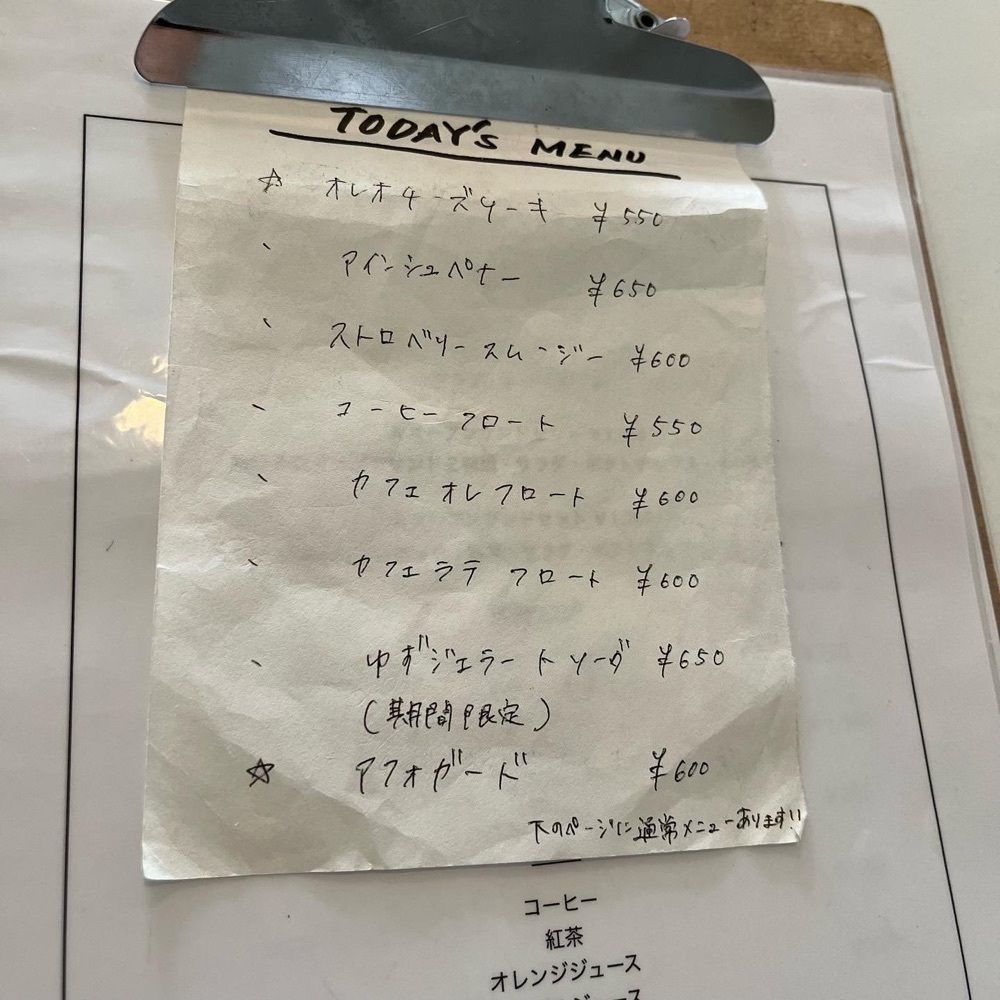 TODAY'S MENU
☆ オレオチーズケーキ ¥550
、 アインシュペナー ¥650
、 ストロベリースムージー ¥600
、 コーヒーフロート ¥550
、 カフェオレフロート ¥600
、 カフェラテフロート ¥600
、 ゆずジェラートソーダ ¥650
(期間限定)
☆ アフォガード ¥600
下のページに通常メニューあります!!
コーヒー
紅茶
オレンジジュース
ジュース